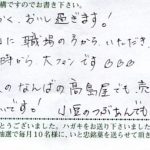 構ですのでお書き下さい。
く、おいし過ぎます!
に 職場の方から、いただき、
時から、大ファンです
のなんばの高島屋でも売
 です! 小豆のつぶあんでも
とうございました。ハガキをお送り下さいました
抽選で毎月10名様に、いと忠銘菓を送らせて頂き